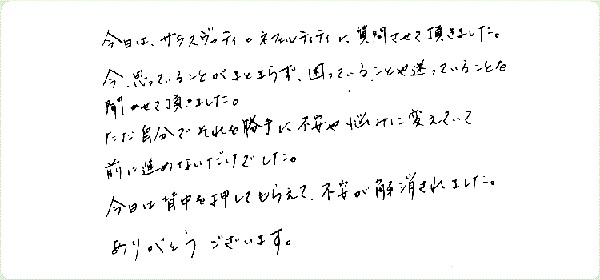 今日は、サラスヴァティとネフェルティティに質問させて頂きました。
今、思っていることがまとまらず、困っていることや迷っていることを
聞かせて頂きました。
ただ自分でそれを勝手に不安や悩みに変えていて
前に進めないだけでした。
今日は背中を押してもらえて、不安が解消されました。
ありがとうございます。